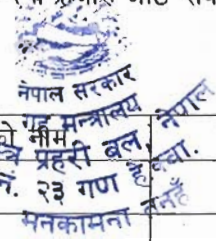 नेपाल सरकार
गृह मन्त्रालय
नेपाल
प्रहरी बल,
नं. २३ गण हे.क्वा.
मनकामना तनहुँ